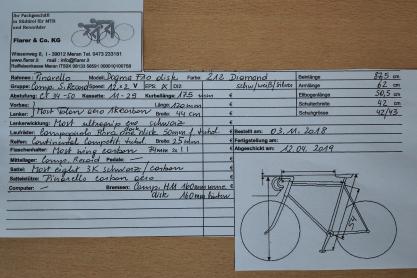 Ihr Fachgeschäft
in Südtirol für MTB
und Rennräder
Flarer & Co. KG
Wiesenweg 8, I - 39012 Meran Tel. 0473 233181
www.flarer.it mail: info@flarer.it
Rahmen: Pinarello Model: Dogma F10 disk Farbe: 212 Diamond
Gruppe: Comp. S. Record Gänge: 12x2 V EPS: X DI2: schw/weiß/silver
Abstufung: CT 34-50 Kassette: 11-29 Kurbellänge: 175 mm €
Vorbau: Länge: 120 mm €
Lenker: Most Talon aero 1K carbon Breite: 44 cm €
Lenkerwicklung: Most ultragrip evo schwarz €
Laufräder: Campagnolo Bora one disk 50mm €
Reifen: Continental Competition Breite: 25 mm €
Flaschenhalter: Most wing carbon €
Mittellager: Comp. Record Pedale: — €
Sattel: Most eight 3K schwarz / carbon €
Sattelstütze: Pinarello carbon aero €
Computer: — Bremsen: Comp. H11 160mm vorne €
disk 160 mm hinten €
Beinlänge 87,5 cm
Armlänge 62 cm
Ellbogenlänge 50,5 cm
Schulterbreite 42 cm
Schuhgrösse 42/43
Bestellt am: 03.11.2018
Fertigstellung am:
Abgeschickt am: 12.04.2019
54